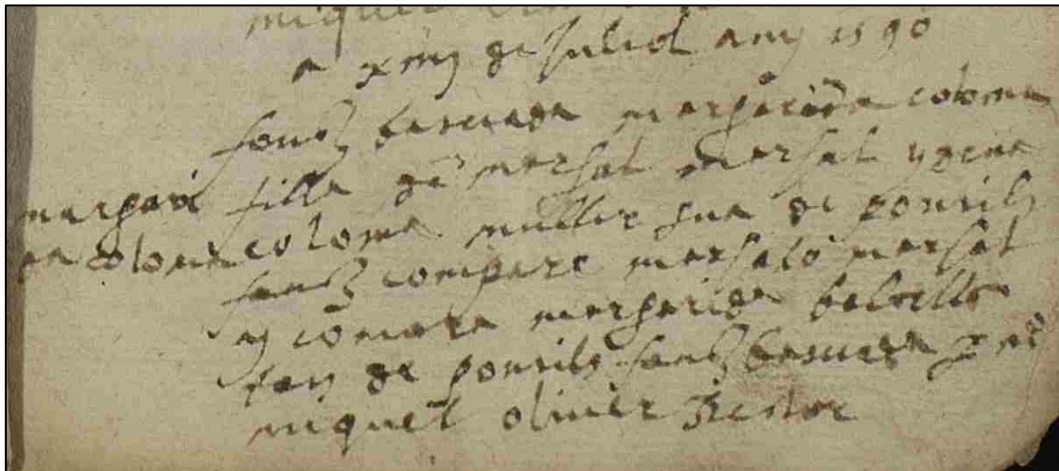 miquel
a xiiij de juliol any 1590
fonch batejada margarida coloma
filla de marsal marsal y de na
margari
da coloma
coloma muller sua de pontils
fonch compare marsalo marsal
y comara margarida
tots de pontils fonch batejada per mi
miquel oliver Rector